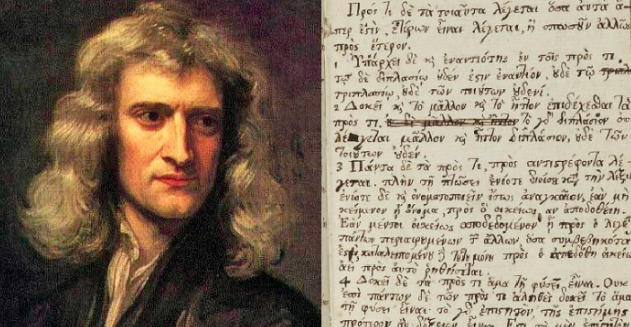 Πρός τι δὲ τὰ τοιαῦτα λέγεται ὅσα αὐτὰ ἅ-
περ ἐστὶν, ἑτέρων εἶναι λέγεται, ἢ ὁπωσοῦν ἄλλως
πρὸς ἕτερον.
1 Ὑπάρχει δὲ ϗ ἐναντιότης ἐν τοῖς πρός τι
τῷ δὲ διπλασίῳ οὐδέν ἐστιν ἐναντίον, οὐδὲ τῷ
τριπλασίῳ, οὐδὲ τῶν τοιούτων οὐδενί.
2 Δοκεῖ ϗ τὸ μᾶλλον ϗ τὸ ἧττον ἐπιδέχεσθαι τὰ
πρός τι, τὸ γὰρ διπλάσιον οὐ
λέγεται μᾶλλον ϗ ἧττον διπλάσιον, οὐδὲ τῶν
τοιούτων οὐδέν.
3 Πάντα δὲ τὰ πρός τι, πρὸς ἀντιστρέφοντα λέ-
γεται. πλὴν τῇ πτώσει ἐνίοτε διοίσει ϗ τὴν λέξιν
ἐνίοτε δὲ ϗ ὀνοματοποιεῖν ἴσως ἀναγκαῖον, ἐὰν μὴ
κείμενον ᾖ ὄνομα, πρὸς ὃ οἰκείως ἂν ἀποδοθείη.
Ἐὰν μέντοι οἰκείως ἀποδεδομένον ᾖ πρὸς ὃ λέγε
πάντων περιαιρεμένων τ ἄλλων ὅσα συμβεβηκότα
ἐστι, καταλειπομένου τούτου μόνου πρὸς ὃ ἀπεδόθη οἰκείως
ἀεὶ πρὸς αὐτὸ ῥηθήσεται.
4 Δοκεῖ δὲ τὰ πρός τι ἅμα τῇ φύσει εἶναι. Οὐκ
ἐπὶ πάντων δὲ τῶν πρός τι ἀληθὲς δοκεῖ τὸ ἅμα
τῇ φύσει εἶναι· τὸ γὰρ ἐπιστητὸν τῆς ἐπιστήμης
πρότερον ἂν δόξειεν εἶναι.